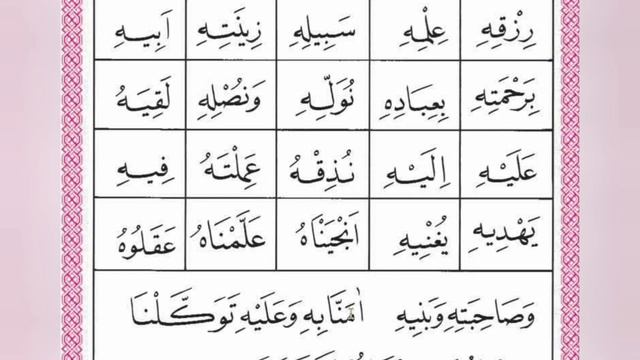 رِزْقِهِ عِلْمِهِ سَبِيلِهِ زِينَتِهِ اَبِيهِ
بِرَحْمَتِهِ بِعِبَادِهِ نُوَلِّهِ وَنُصْلِهِ لَقِيَهُ
عَلَيْهِ اِلَيْهِ نُذِقْهُ عَمِلْتَهُ فِيهِ
يَهْدِيهِ يُغْنِيهِ اَنْجَيْنَاهُ عَلَّمْنَاهُ عَقَلُوهُ
وَصَاحِبَتِهِ وَبَنِيهِ اٰمَنَّا بِهِ وَعَلَيْهِ تَوَكَّلْنَا